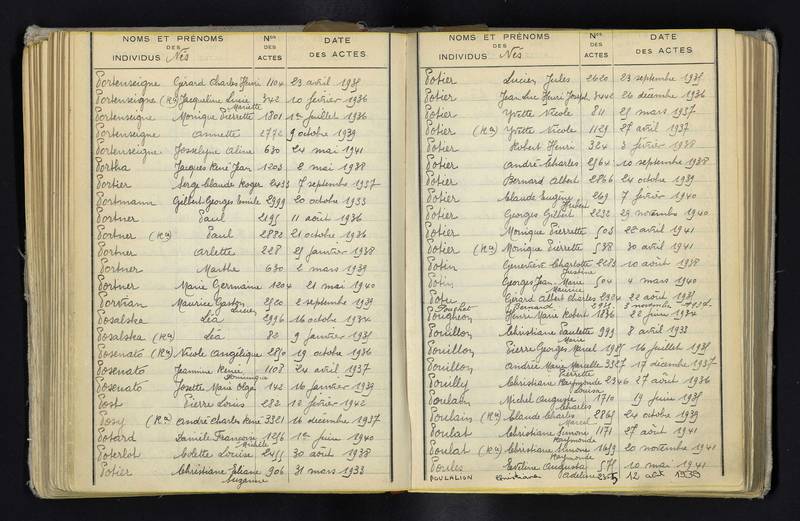 NOMS ET PRÉNOMS DES INDIVIDUS Nés Nos DES ACTES DATE DES ACTES
Portenseigne Gérard Charles Henri 1104 23 avril 1935
Portenseigne (Rn) Jacqueline Lucie Mariette 342 10 février 1936
Portenseigne Monique Pierrette 1801 1er juillet 1936
Portenseigne Annette 2772 9 octobre 1939
Portenseigne Josselyne Aline 630 24 mai 1941
Portha Jacques René Jean 1203 2 mai 1938
Portier Serge Claude Roger 2433 7 septembre 1937
Portmann Gilbert Georges Emile 2999 20 octobre 1933
Portner Paul 2195 11 août 1936
Portner (Rn) Paul 2882 21 octobre 1936
Portner Arlette 228 25 janvier 1938
Portner Marthe 630 2 mars 1939
Portner Marie Germaine 1204 21 mai 1940
Porvian Maurice Gaston Lucien 2500 2 septembre 1939
Posalska Léa 2996 16 octobre 1934
Posalska (Rn) Léa 82 9 janvier 1935
Posenato (Rn) Nicole Angélique 2850 19 octobre 1936
Posenato Jeanine Renée Dominique 1108 24 avril 1937
Posenato Josette Marie Olga 142 16 janvier 1939
Post Pierre Louis 282 12 février 1942
Posy (Rn) André Charles René 3321 16 décembre 1937
Potard Danièle Françoise Michèle 1256 1er juin 1940
Poterlot Colette Louise 2455 30 août 1938
Potier Christiane Eliane Suzanne 906 31 mars 1933
NOMS ET PRÉNOMS DES INDIVIDUS Nés Nos DES ACTES DATE DES ACTES
Potier Lucien Jules 2620 23 septembre 1935
Potier Jean Luc Henri Joseph 3442 26 décembre 1936
Potier Yvette Nicole 811 25 mars 1937
Potier (Rn) Yvette Nicole 1129 27 avril 1937
Potier Robert Henri 324 3 février 1938
Potier André Charles 2564 10 septembre 1938
Potier Bernard Albert 2866 24 octobre 1939
Potier Claude Eugène Hubert 269 7 février 1940
Potier Georges Gilbert 2232 29 novembre 1940
Potier Monique Pierrette 503 22 avril 1941
Potier (Rn) Monique Pierrette 538 30 avril 1941
Potin Geneviève Charlotte Justine 2283 10 août 1938
Potin Georges Jean Marie Maurice 504 4 mars 1940
Gérard Albert Charles 2304 22 août 1935
Pouchet Bernard 3 novembre
Pougheon Henri Marie Robert 1836 22 juin 1934
Pouillon Christiane Paulette Marie 999 8 avril 1933
Pouillon Pierre Georges Marcel 1985 16 juillet 1935
Pouillon André Marie Marcelle Pierrette 3327 17 décembre 1937
Pouilly Christiane Raymonde Louisa 2346 27 août 1936
Poulain Michel Auguste Charles 1710 19 juin 1935
Poulain (Rn) Claude Charles Marcel 2865 24 octobre 1939
Poulat Christiane Simone Raymonde 1171 27 août 1941
Poulat (Rn) Christiane Simone Raymonde 1659 20 novembre 1941
Poules Eveline Augusta 575 10 mai 1941
POULALION Christiane Adeline 12 août 1939